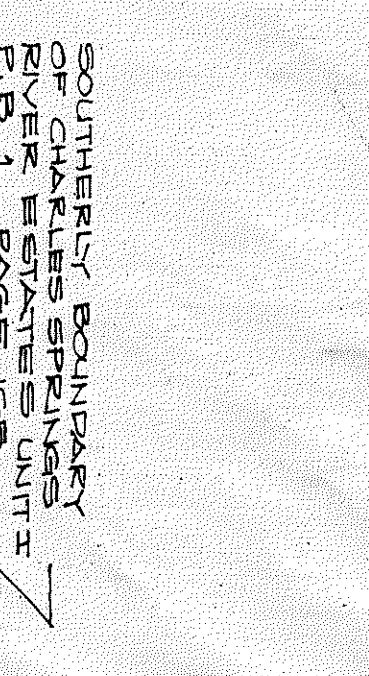 SOUTHERLY BOUNDARY
OF CHARLES SPRINGS
RIVER ESTATES UNIT I
P.B. 1 PAGE